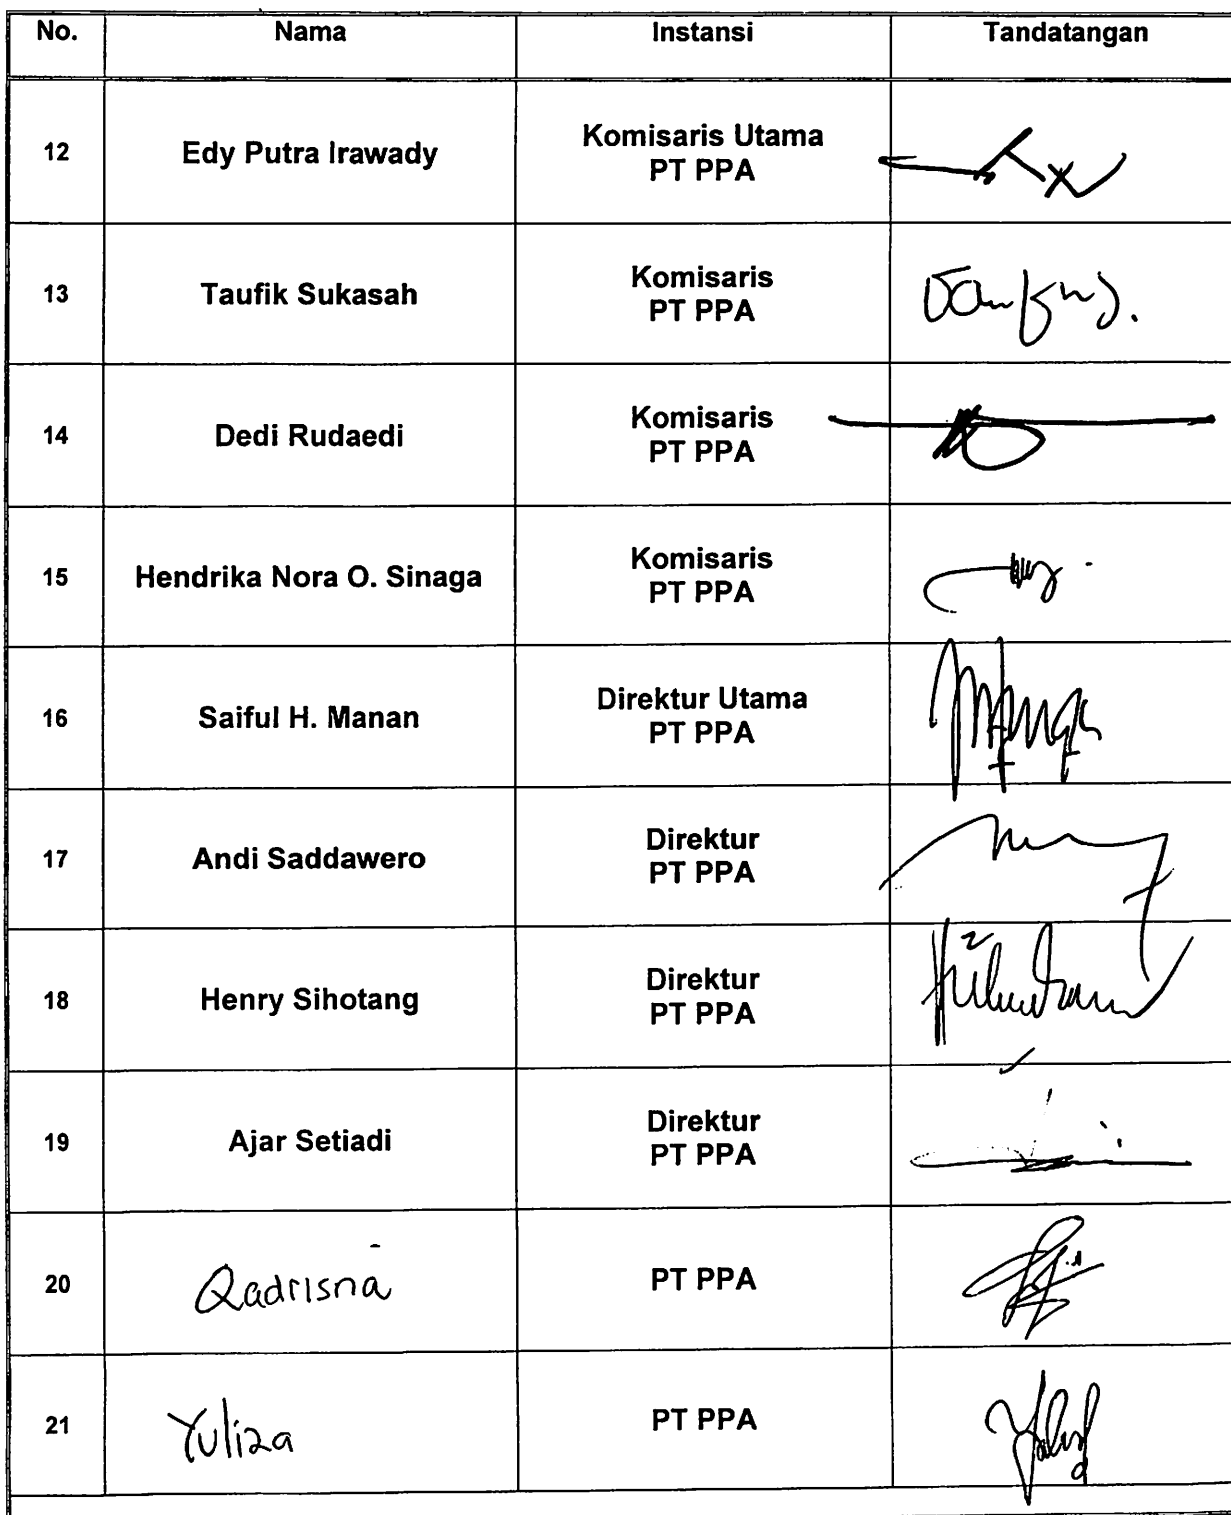 No. Nama Instansi Tandatangan
12 Edy Putra Irawady Komisaris Utama
PT PPA
13 Taufik Sukasah Komisaris
PT PPA
14 Dedi Rudaedi Komisaris
PT PPA
15 Hendrika Nora O. Sinaga Komisaris
PT PPA
16 Saiful H. Manan Direktur Utama
PT PPA
17 Andi Saddawero Direktur
PT PPA
18 Henry Sihotang Direktur
PT PPA
19 Ajar Setiadi Direktur
PT PPA
20 Qadrisna PT PPA
21 Yuliza PT PPA